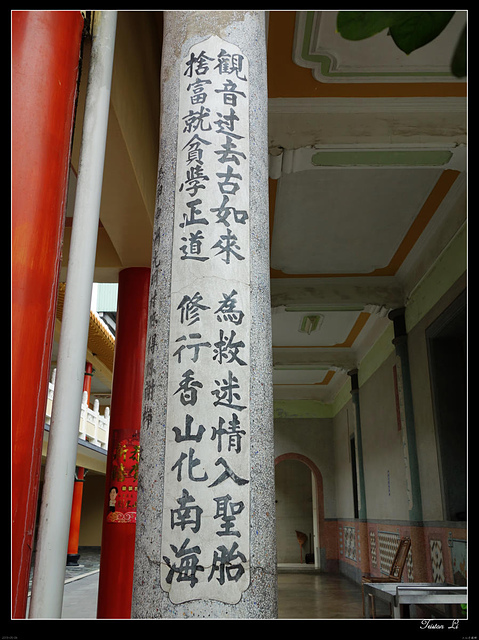 觀音过去古如來
為救迷情入聖胎
捨富就貧學正道
修行香山化南海
Tristan Li